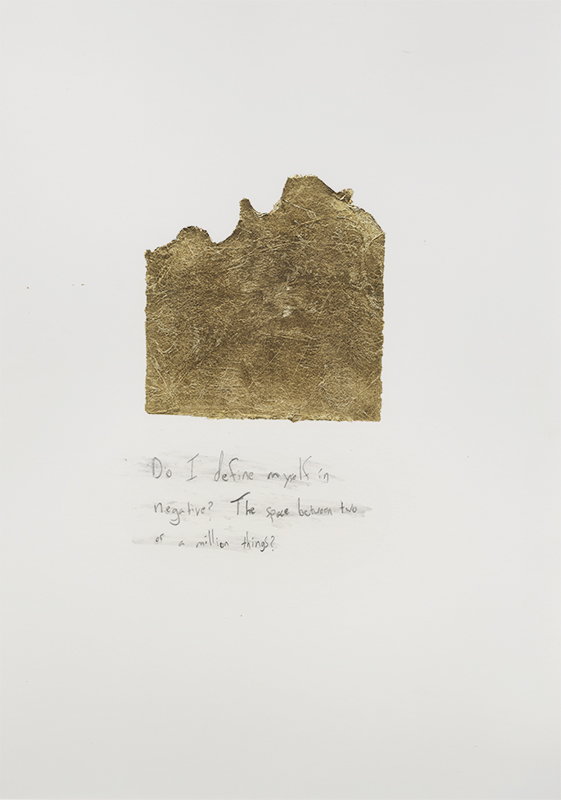 Do I define myself in
negative? The space between two
or a million things?